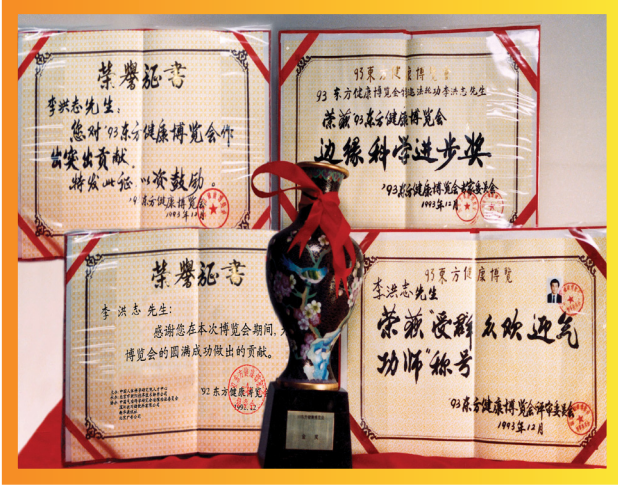 荣誉证书
李洪志先生:
您对'93东方健康博览会作
出突出贡献、
特发此证 以资鼓励。
东方健康博览会
1993年12月
93東方健康博览会
93东方健康博览会
法轮功李洪志先生
荣获'93东方健康博览会
边缘科学进步奖
'93东方健康博览会专家委员会
1993年12月
荣誉证书
李洪志先生:
感谢您在本次博览会期间,
博览会的圆满成功做出的贡献。
'92东方健康博览会
1992.12
93東方健康博览
李洪志先生
荣获"受群众欢迎气
功师"称号
'93东方健康博览会评审委员会
1993年12月